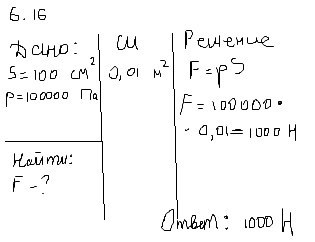 6.16
Дано:
S=100 см²
P=100000 Па
Найти:
F-?
СИ
0,01 м²
Решение
F=pS
F=100000·
·0,01=1000 Н
Ответ: 1000 Н